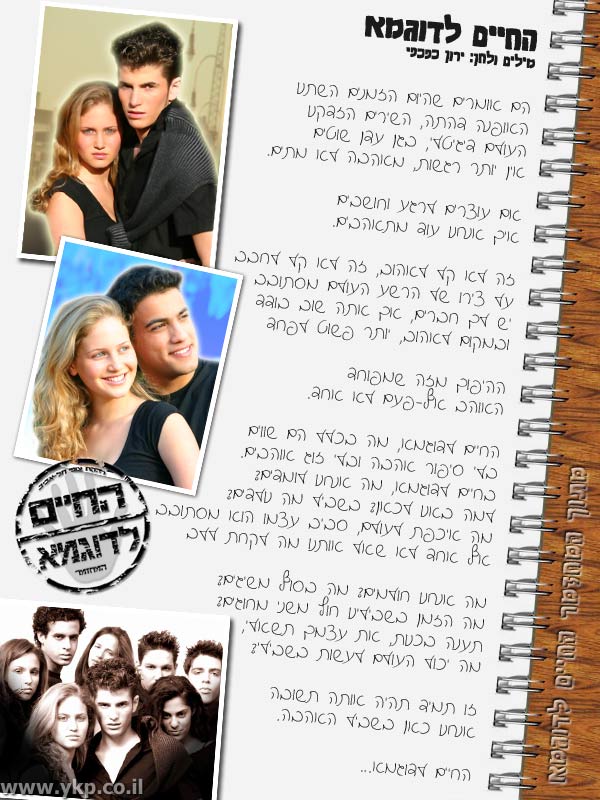 החיים לדוגמא
מילים ולחן: ירון כפכפי
הם אומרים שהיום הזמנים השתנו
האופנה דהתה, השירים הזדקנו
העולם דיגיטלי, כגן עדן שוטים
אין יותר רגשות, מאהבה לא מתים.
אם עוצרים לרגע וחושבים
איך אנחנו עוד מתאהבים.
זה לא קל לאהוב, זה לא קל לחבב
על צירו של הרשע העולם מסתובב
יש לך חברים, אך אתה שוב בודד
ובמקום לאהוב, יותר פשוט לפחד
ההיפוך מזה שמפוחד
האוהב אף-פעם לא אוחד.
החיים לדוגמא, מה בכלל הם שווים
בלי סיפור אהבה ובלי זוג אוהבים.
בחיים לדוגמא, מה אנחנו לומדים?
למה באנו לכאן? בשביל מה נולדים?
מה איכפת לעולם, סביב עצמו הוא מסתובב
אף אחד לא שאל אותנו מה לקחת ללב
מה אנחנו חולמים? מה בסוף משיגים?
מה הזמן בשבילנו חוץ משני מחוגים?
תענה בכנות, את עצמך תשאל,
מה יכול העולם לעשות בשביל?
זו תמיד תהיה אותה תשובה
אנחנו כאן בשביל האהבה.
החיים לדוגמא...
החיים
לדוגמא
המחזמר
מתוך המחזמר החיים לדוגמא
www.ykp.co.il